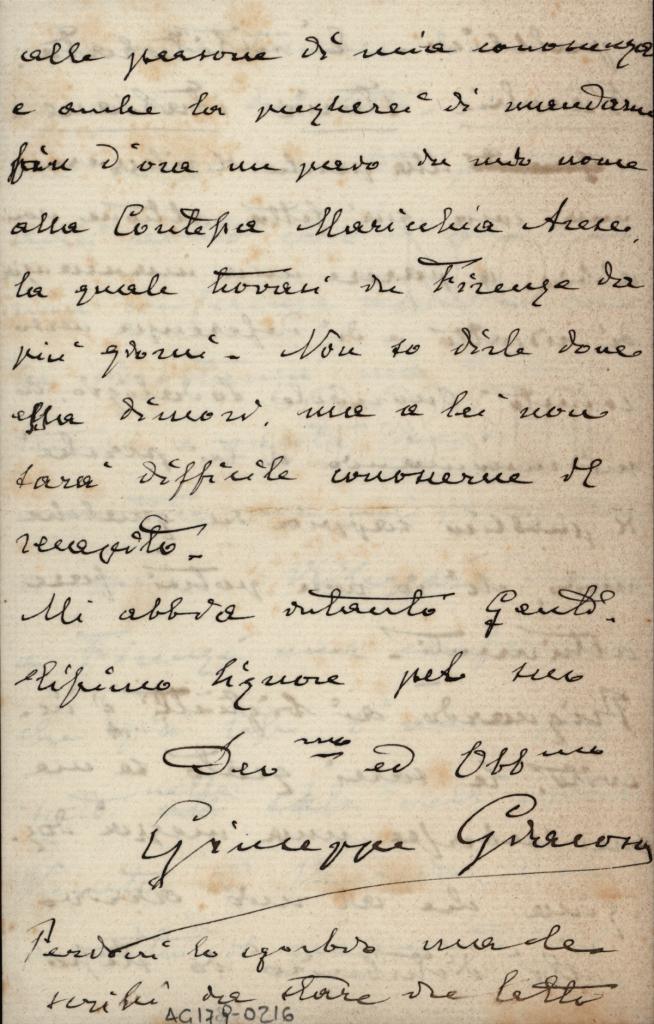 alle persone di mia conoscenza
e anche la pregherei di mandarne
fin d'ora un palco in mio nome
alla Contessa Maricchia Arese,
la quale trovasi in Firenze da
più giorni. Non so dirle dove
essa dimori, ma a lei non
sarà difficile conoscerne il
recapito.
Mi abbia intanto Genti-
lissimo Signore pel suo
Dev.mo ed Obb.mo
Giuseppe Giacosa
Perdoni lo sgorbio ma le
scrivi da stare in letto
AG179-0216